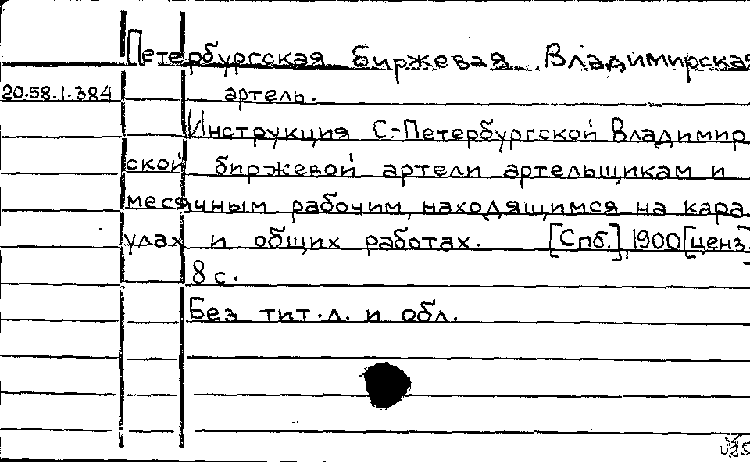 Петербургская Биржевая Владимирская
20.58.1.384 артель.
Инструкция С-Петербургской Владимир
ской биржевой артели артельщикам и
месячным рабочим, находящимся на кара
улах и общих работах. [Спб.], 1900 [ценз.]
8 с.
Без тит. л. и обл.